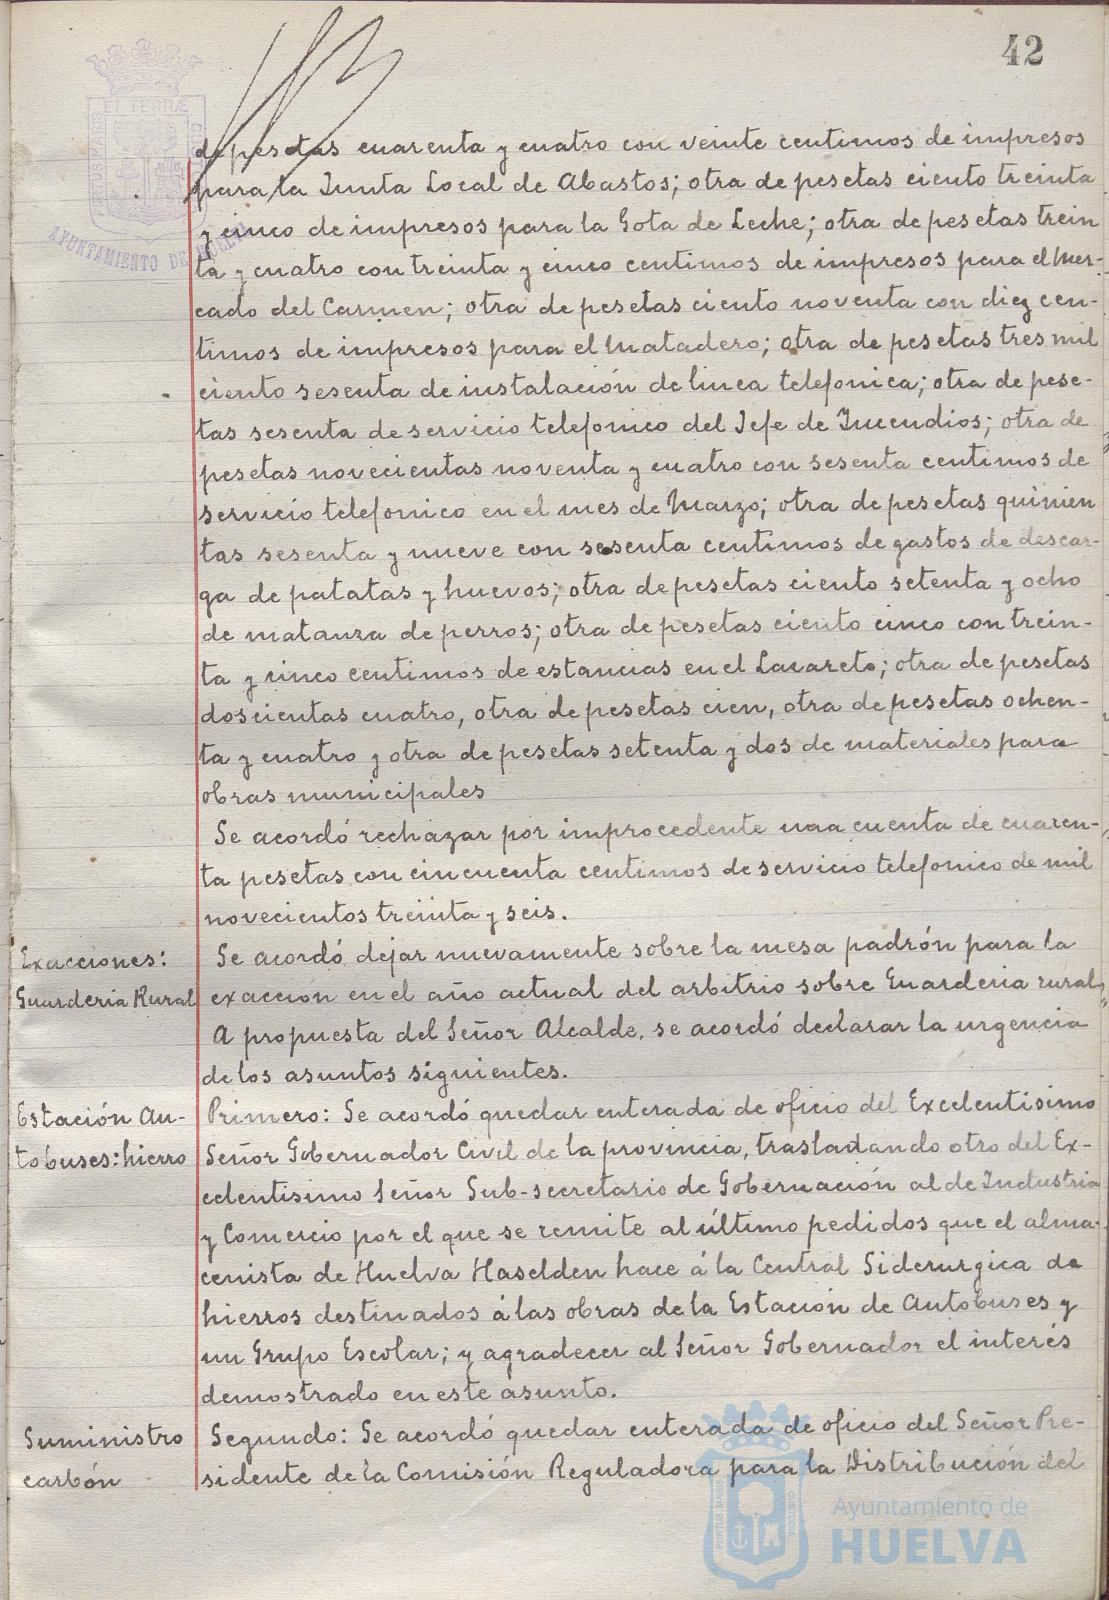 42
de pesetas cuarenta y cuatro con veinte centimos de impresos
para la Junta Local de Abastos; otra de pesetas ciento treinta
y cinco de impresos para la Gota de Leche; otra de pesetas trein
ta y cuatro con treinta y cinco centimos de impresos para el Mer-
cado del Carmen; otra de pesetas ciento noventa con diez cen-
timos de impresos para el Matadero; otra de pesetas tres mil
ciento sesenta de instalación de linea telefonica; otra de pese-
tas sesenta de servicio telefonico del Jefe de Incendios; otra de
pesetas novecientas noventa y cuatro con sesenta centimos de
servicio telefonico en el mes de Marzo; otra de pesetas quinien
tas sesenta y nueve con sesenta centimos de gastos de descar-
ga de patatas y huevos; otra de pesetas ciento setenta y ocho
de matanza de perros; otra de pesetas ciento cinco con trein-
ta y cinco centimos de estancias en el Lazareto; otra de pesetas
doscientas cuatro, otra de pesetas cien, otra de pesetas ochen-
ta y cuatro y otra de pesetas setenta y dos de materiales para
obras municipales
Se acordó rechazar por improcedente una cuenta de cuaren-
ta pesetas con cincuenta centimos de servicio telefonico de mil
novecientos treinta y seis.
Exacciones:
Guarderia Rural
Se acordó dejar nuevamente sobre la mesa padrón para la
exacción en el año actual del arbitrio sobre Guarderia rural,
A propuesta del Señor Alcalde, se acordó declarar la urgencia
de los asuntos siguientes.
Estación Au-
tobuses: hierro
Primero: Se acordó quedar enterada de oficio del Excelentisimo
Señor Gobernador Civil de la provincia, trasladando otro del Ex-
celentisimo Señor Sub-secretario de Gobernación al de Industria
y Comercio por el que se remite al último pedidos que el alma-
cenista de Huelva Haselden hace á la Central Siderurgica de
hierros destinados á las obras de la Estación de Autobuses y
un Grupo Escolar; y agradecer al Señor Gobernador el interés
demostrado en este asunto.
Suministro
carbón
Segundo: Se acordó quedar enterada de oficio del Señor Pre-
sidente de la Comisión Reguladora para la Distribución del
AYUNTAMIENTO DE HUELVA
Ayuntamiento de
HUELVA